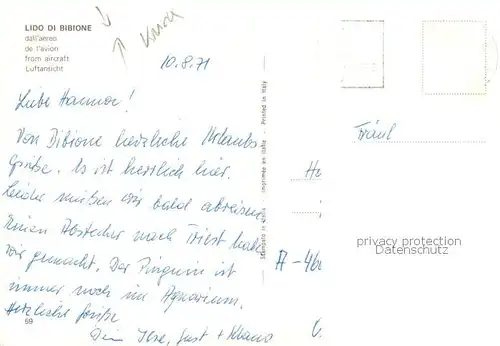 LIDO DI BIBIONE
dall'aereo
de l'avion
from aircraft
Luftansicht
10.8.71
Liebe Hannor!
Von Bibione herzliche Urlaubs
Grüße. Es ist herrlich hier.
Leider müßen wir bald abreisen
Einen Abstecher nach Triest hab
wir gemacht. Der Pinguin ist
immer noch im Aquarium.
Herzliche Grüße
Ilse, Gust +
69
Stampato in Italia - Imprimée en Italie - Printed in Italy
Fräul
A-46
privacy protection
Datenschutz